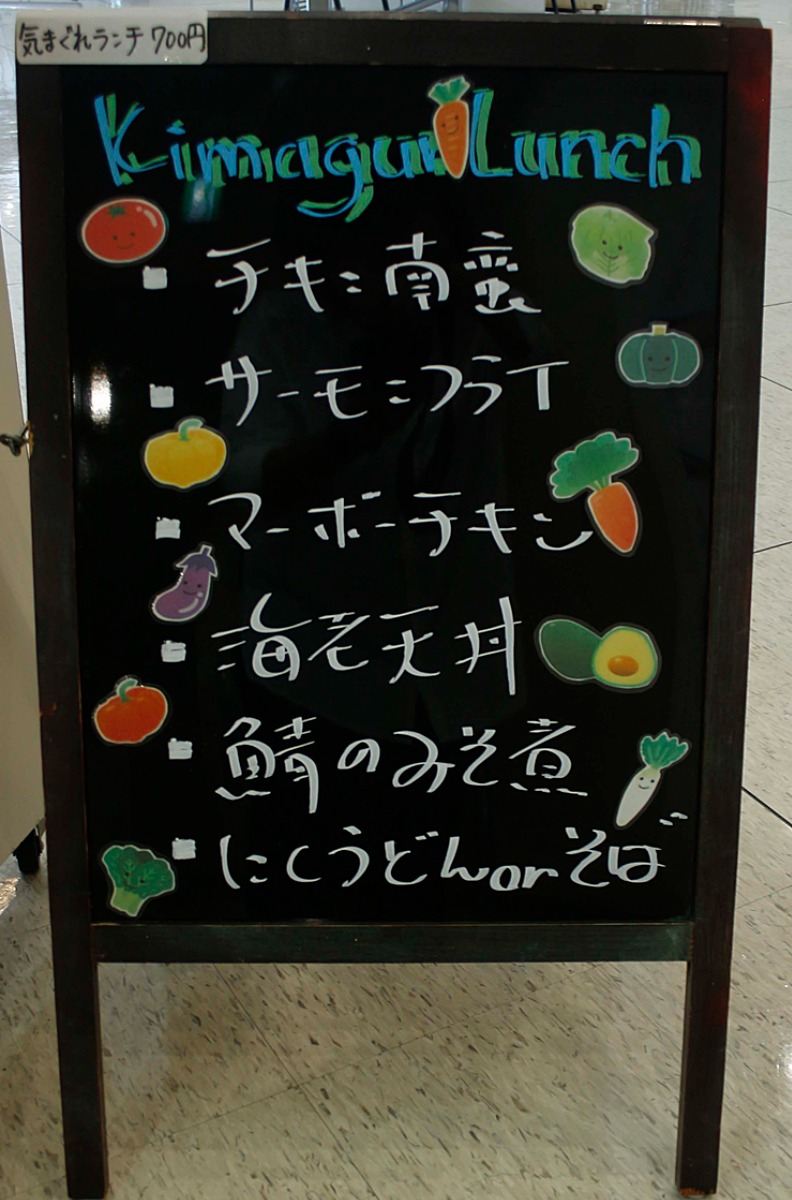 気まぐれランチ 700円
Kimagure Lunch
チキン南蛮
サーモンフライ
マーボーチキン
海老天丼
鯖のみそ煮
にくうどんorそば